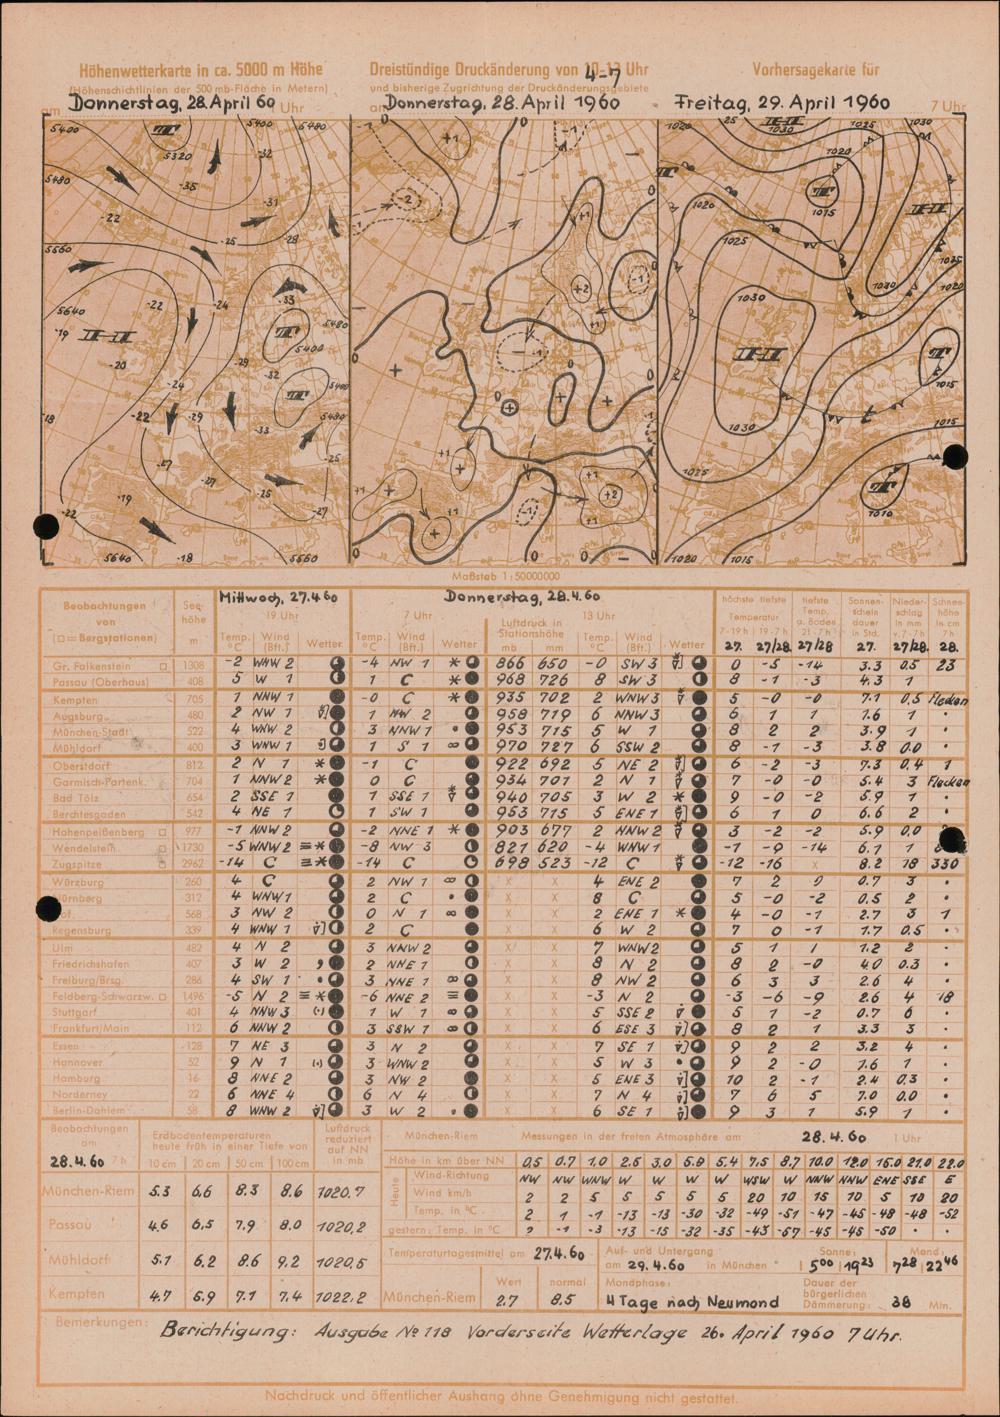 Höhenwetterkarte in ca. 5000 m Höhe
(Höhenschichtlinien der 500 mb-Fläche in Metern)
am Donnerstag, 28. April 60 Uhr
Dreistündige Druckänderung von 4-7 Uhr
und bisherige Zugrichtung der Druckänderungsgebiete
am Donnerstag, 28. April 1960
Vorhersagekarte für
Freitag, 29. April 1960 7 Uhr
Maßstab 1:50000000
Beobachtungen von (□=Bergstationen)
Seehöhe m
Mittwoch, 27.4.60
19 Uhr
Temp. °C Wind (Bft.) Wetter
Donnerstag, 28.4.60
7 Uhr
Temp. °C Wind (Bft.) Wetter
13 Uhr
Luftdruck in Stationshöhe mb mm
Temp. °C Wind (Bft.) Wetter
höchste tiefste Temperatur 7-19 h 19-7 h
tiefste Temp. a. Boden 21-7 h
Sonnenscheindauer in Std.
Niederschlag in mm v. 7-7 h
Schneehöhe in cm 7 h
27. 27/28 27/28 27. 27/28. 28.
Gr. Falkenstein □ 1308 -2 WNW 2 -4 NW 1 * 866 650 -0 SW 3 0 -5 -14 3.3 0.5 23
Passau (Oberhaus) 408 5 W 1 1 C * 968 726 8 SW 3 8 -1 -3 4.3 1
Kempten 705 1 NNW 1 -0 C * 935 702 2 WNW 3 5 -0 -0 7.1 0.5 Flecken
Augsburg 480 2 NW 1 1 NW 2 958 719 6 NNW 3 6 1 1 1.6 1 •
München-Stadt 522 4 WNW 2 3 NNW 1 • 953 715 5 W 1 8 2 2 3.9 1 •
Mühldorf 400 3 WNW 1 1 S 1 ∞ 970 727 6 SSW 2 8 -1 -3 3.8 0.0 •
Oberstdorf 812 2 N 1 * -1 C 922 692 5 NE 2 6 -2 -3 7.3 0.4 1
Garmisch-Partenk. 704 1 NNW 2 * 0 C 934 701 2 N 1 7 -0 -0 5.4 3 Flecken
Bad Tölz 654 2 SSE 1 1 SSE 1 940 705 3 W 2 * 9 -0 -2 5.9 1 •
Berchtesgaden 542 4 NE 1 1 SW 1 953 715 5 ENE 1 6 1 0 6.6 2 •
Hohenpeißenberg □ 977 -1 NNW 2 -2 NNE 1 * 903 677 2 NNW 2 3 -2 -2 5.9 0.0
Wendelstein □ 1730 -5 WNW 2 ≡* -8 NW 3 821 620 -4 WNW 1 -1 -9 -14 6.1 1
Zugspitze □ 2962 -14 C ≡* -14 C 698 523 -12 C -12 -16 x 8.2 18 330
Würzburg 260 4 C 2 NW 1 ∞ x x 4 ENE 2 7 2 0 0.7 3 •
Nürnberg 312 4 WNW 1 2 C • x x 8 C 5 -0 -2 0.5 2 •
Hof 568 3 NW 2 0 N 1 ∞ x x 2 ENE 1 * 4 -0 -1 2.7 3 1
Regensburg 339 4 WNW 1 2 C x x 6 W 2 7 0 -1 1.7 0.5 •
Ulm 482 4 N 2 3 NNW 2 x x 7 WNW 2 5 1 1 1.2 2 •
Friedrichshafen 407 3 W 2 , 2 NNE 1 x x 8 N 2 8 2 -0 4.0 0.3 •
Freiburg/Brsg. 286 4 SW 1 • 3 NNE 1 ∞ x x 8 NW 2 6 3 3 2.6 4 •
Feldberg-Schwarzw. □ 1496 -5 N 2 ≡* -6 NNE 2 ≡ x x -3 N 2 -3 -6 -9 2.6 4 18
Stuttgart 401 4 NNW 3 (•) 1 W 1 ∞ x x 5 SSE 2 5 1 -2 0.7 6 •
Frankfurt/Main 112 6 NNW 2 3 SSW 1 ∞ x x 6 ESE 3 8 2 1 3.3 3 •
Essen 128 7 NE 3 3 N 2 x x 7 SE 1 9 2 2 3.2 4 •
Hannover 52 9 N 1 (•) 3 WNW 2 x x 5 W 3 • 9 2 -0 1.6 1 •
Hamburg 16 8 NNE 2 3 NW 2 x x 5 ENE 3 10 2 -1 2.4 0.3 •
Norderney 22 6 NNE 4 6 N 4 x x 7 N 4 7 6 5 7.0 0.0 •
Berlin-Dahlem 58 8 WNW 2 3 W 2 • x x 6 SE 1 9 3 1 5.9 1 •
Beobachtungen am 28.4.60 7 h
Erdbodentemperaturen heute früh in einer Tiefe von
10 cm 20 cm 50 cm 100 cm
Luftdruck reduziert auf NN in mb
München-Riem 5.3 6.6 8.3 8.6 1020.7
Passau 4.6 6.5 7.9 8.0 1020.2
Mühldorf 5.1 6.2 8.6 9.2 1020.5
Kempten 4.7 5.9 7.1 7.4 1022.2
München-Riem Messungen in der freien Atmosphäre am 28.4.60 1 Uhr
Höhe in km über NN 0.5 0.7 1.0 2.6 3.0 5.0 5.4 7.5 8.7 10.0 12.0 15.0 21.0 22.0
Heute
Wind-Richtung NW NW WNW W W W W WSW W NNW NNW ENE SSE E
Wind km/h 2 2 5 5 5 5 5 20 10 15 10 5 10 20
Temp. in °C 2 1 -1 -13 -13 -30 -32 -49 -51 -47 -45 -48 -48 -52
gestern: Temp. in °C 2 -1 -3 -13 -15 -32 -35 -43 -57 -45 -45 -50 • •
Temperaturtagesmittel am 27.4.60
Wert normal
München-Riem 2.7 8.5
Auf- und Untergang am 29.4.60 in München
Sonne: 5 00 19 23
Mond: 7 28 22 46
Mondphase: 4 Tage nach Neumond
Dauer der bürgerlichen Dämmerung: 38 Min.
Bemerkungen: Berichtigung: Ausgabe № 118 Vorderseite Wetterlage 26. April 1960 7 Uhr.
Nachdruck und öffentlicher Aushang ohne Genehmigung nicht gestattet.